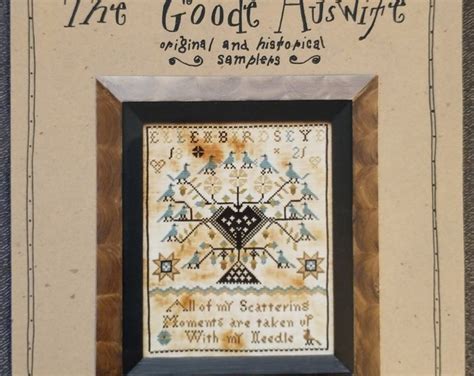 The Goode Huswife
original and historical
samplers
ELLEN BIRDSEYE
18 21
All of my Scattering
Moments are taken up
With my Needle